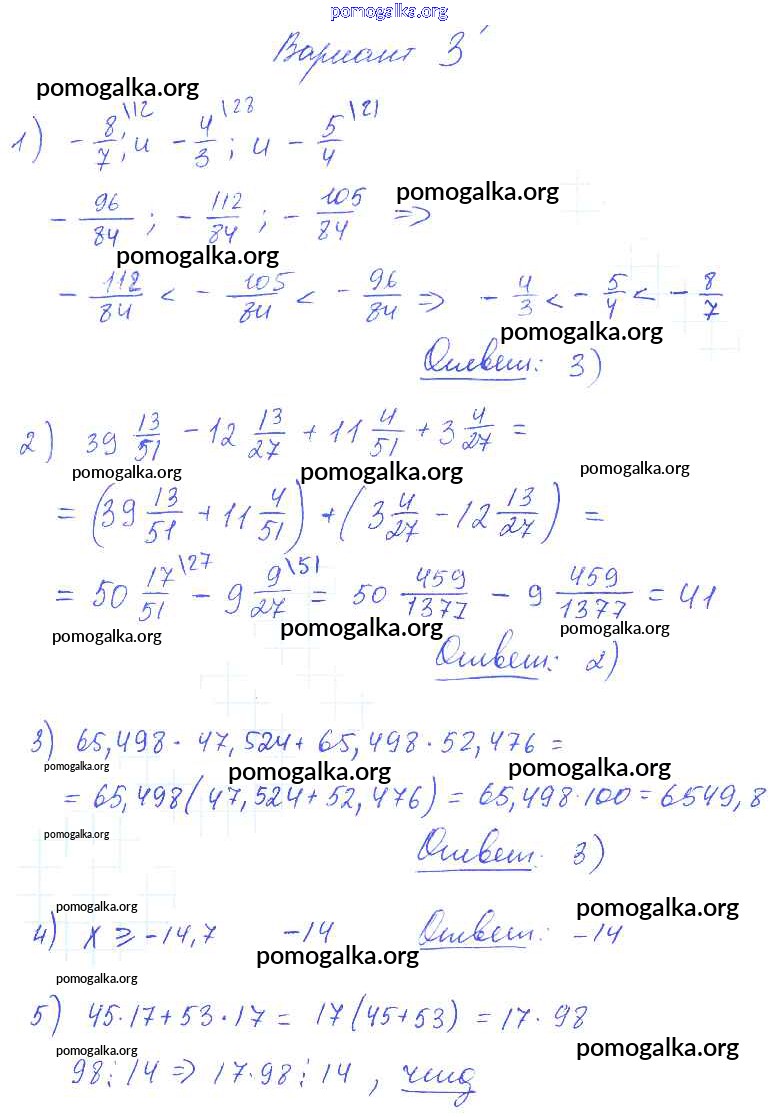 pomogalka.org
Вариант 3
pomogalka.org
1) - 8/7 \12 ; и - 4/3 \28 ; и - 5/4 \21
- 96/84 ; - 112/84 ; - 105/84 =>
pomogalka.org
pomogalka.org
- 112/84 < - 105/84 < - 96/84 => - 4/3 < - 5/4 < - 8/7
pomogalka.org
Ответ: 3)
2) 39 13/51 - 12 13/27 + 11 4/51 + 3 4/27 =
pomogalka.org pomogalka.org pomogalka.org
= (39 13/51 + 11 4/51) + (3 4/27 - 12 13/27) =
= 50 17/51 \27 - 9 9/27 \51 = 50 459/1377 - 9 459/1377 = 41
pomogalka.org pomogalka.org pomogalka.org
Ответ: 2)
3) 65,498 · 47,524 + 65,498 · 52,476 =
pomogalka.org pomogalka.org pomogalka.org
= 65,498 (47,524 + 52,476) = 65,498 · 100 = 6549,8
pomogalka.org
Ответ: 3)
pomogalka.org pomogalka.org
4) x ⩾ -14,7 -14 Ответ: -14
pomogalka.org
pomogalka.org
5) 45·17 + 53·17 = 17 (45+53) = 17 · 98
pomogalka.org pomogalka.org
98 ⋮ 14 => 17·98 ⋮ 14 , чтд